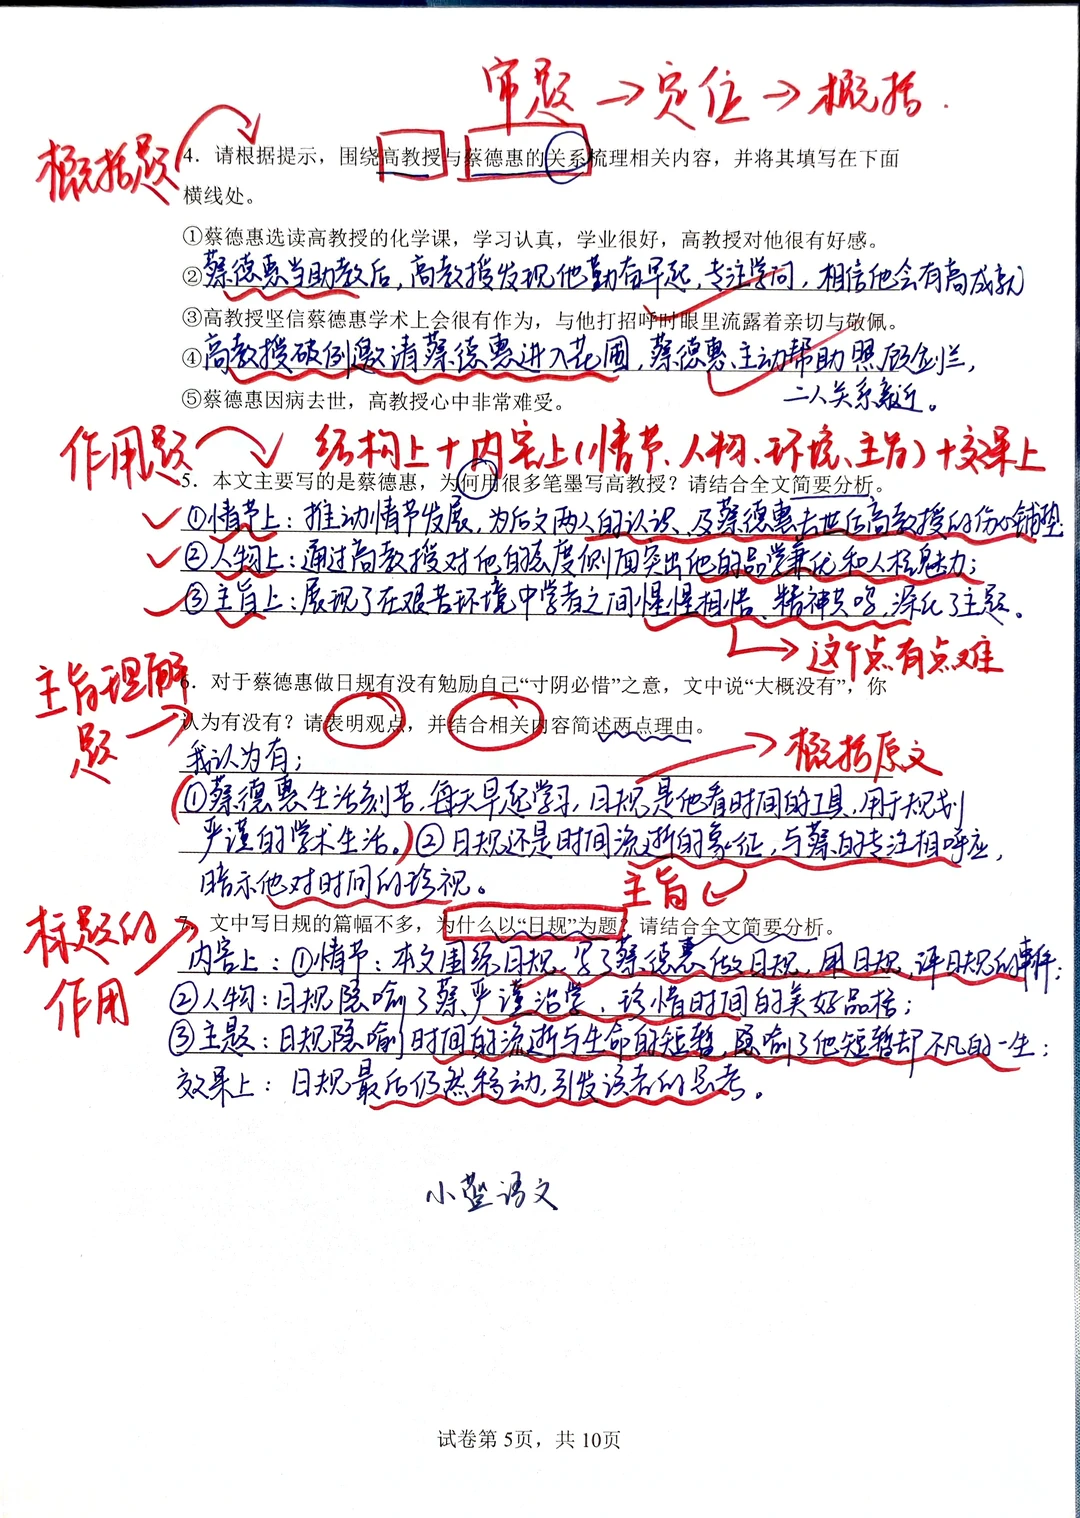 审题→定位→概括.
概括题
4．请根据提示，围绕高教授与蔡德惠的关系梳理相关内容，并将其填写在下面
横线处。
①蔡德惠选读高教授的化学课，学习认真，学业很好，高教授对他很有好感。
②蔡德惠当助教后，高教授发现他勤奋早起，专注学问，相信他会有高成就
③高教授坚信蔡德惠学术上会很有作为，与他打招呼时眼里流露着亲切与敬佩。
④高教授破例邀请蔡德惠进入花圃，蔡德惠主动帮助照顾剑兰，
二人关系亲近。
⑤蔡德惠因病去世，高教授心中非常难受。
作用题
结构上+内容上(情节、人物、环境、主旨)+效果上
5．本文主要写的是蔡德惠，为何用很多笔墨写高教授？请结合全文简要分析。
①情节上：推动情节发展，为后文两人的认识、及蔡德惠去世后高教授的伤心铺垫
②人物上：通过高教授对他的态度侧面突出他的品学兼优和人格魅力；
③主旨上：展现了在艰苦环境中学者之间惺惺相惜、精神共鸣，深化了主题。
这个点有点难
主旨理解
题
6．对于蔡德惠做日规有没有勉励自己“寸阴必惜”之意，文中说“大概没有”，你
认为有没有？请表明观点，并结合相关内容简述两点理由。
我认为有；
概括原文
①蔡德惠生活刻苦，每天早起学习，日规是他看时间的工具，用于规划
严谨的学术生活。②日规还是时间流逝的象征，与蔡的专注相呼应，
暗示他对时间的珍视。
主旨
标题的
作用
7．文中写日规的篇幅不多，为什么以“日规”为题？请结合全文简要分析。
内容上：①情节：本文围绕日规，写了蔡德惠做日规，用日规，评日规的事件；
②人物：日规隐喻了蔡严谨治学，珍惜时间的美好品格；
③主题：日规隐喻了时间的流逝与生命的短暂，隐喻了他短暂却不凡的一生；
效果上：日规最后仍然移动，引发读者的思考。
语文
试卷第 5页，共 10页